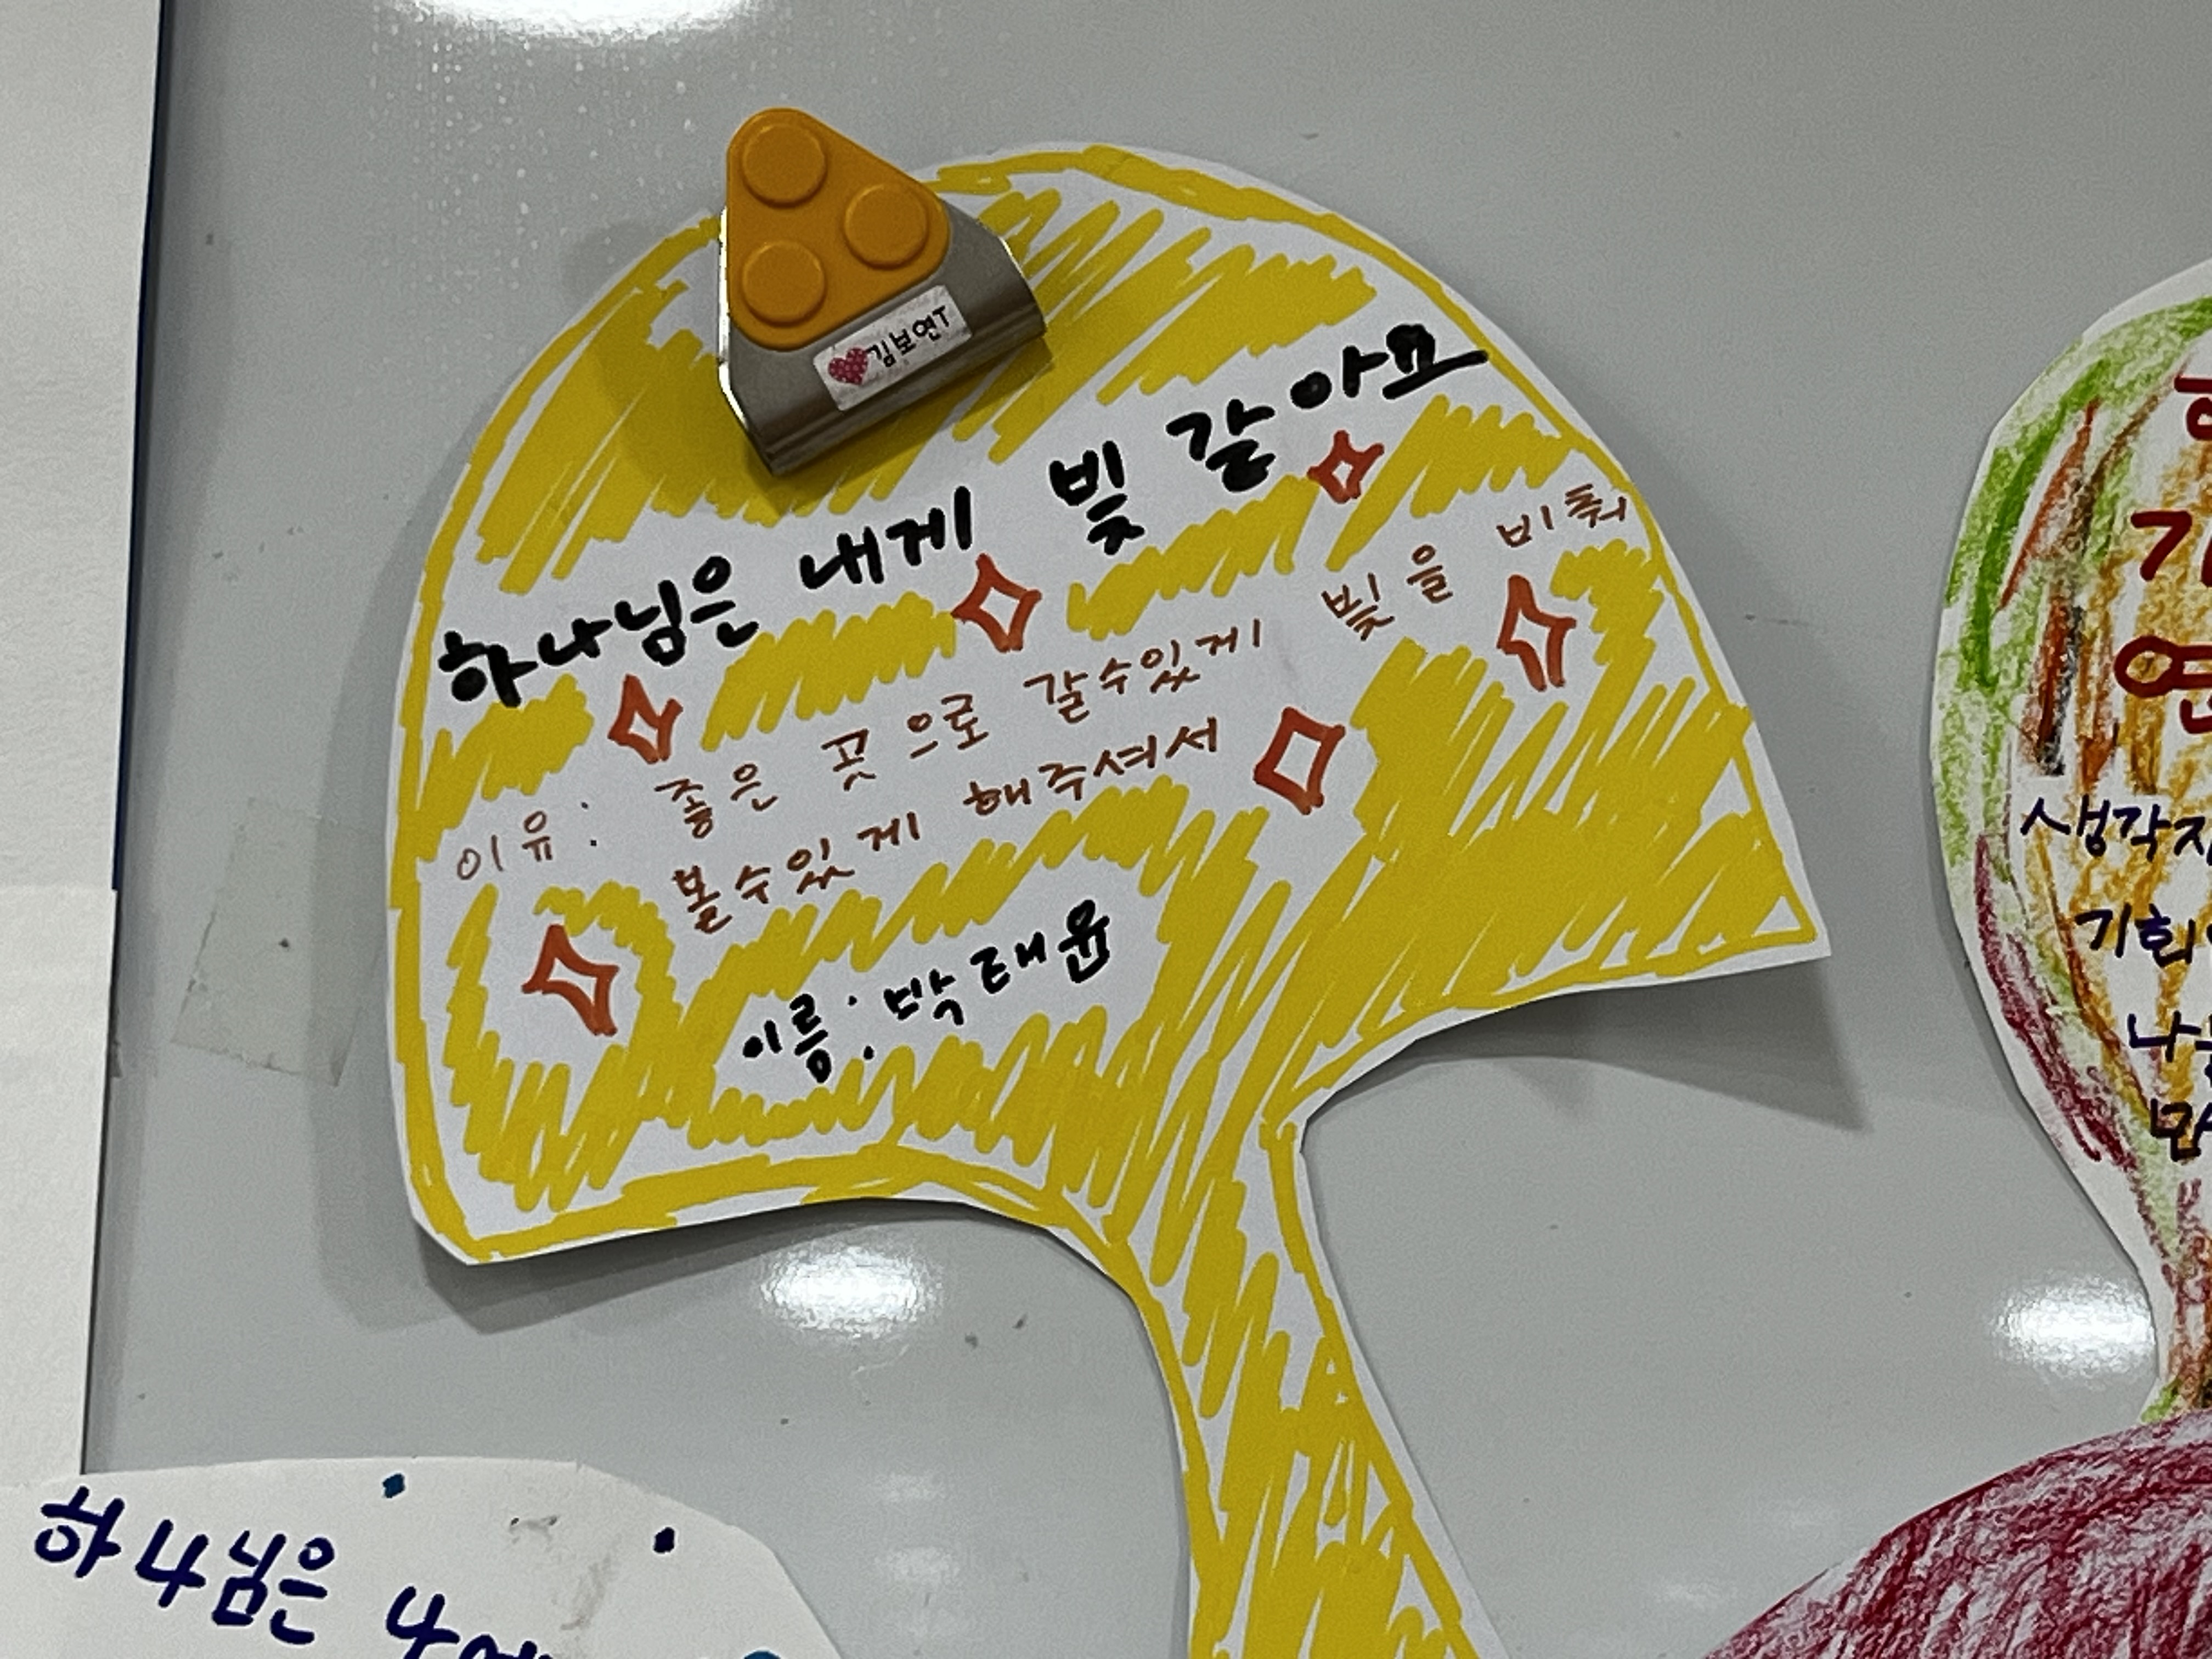 ♥김보연T
하나님은 내게 빛 같아요
이유: 좋은 곳으로 갈수있게 빛을 비춰
볼수있게 해주셔서
이름: 박태윤
생각지
기회
하나님은